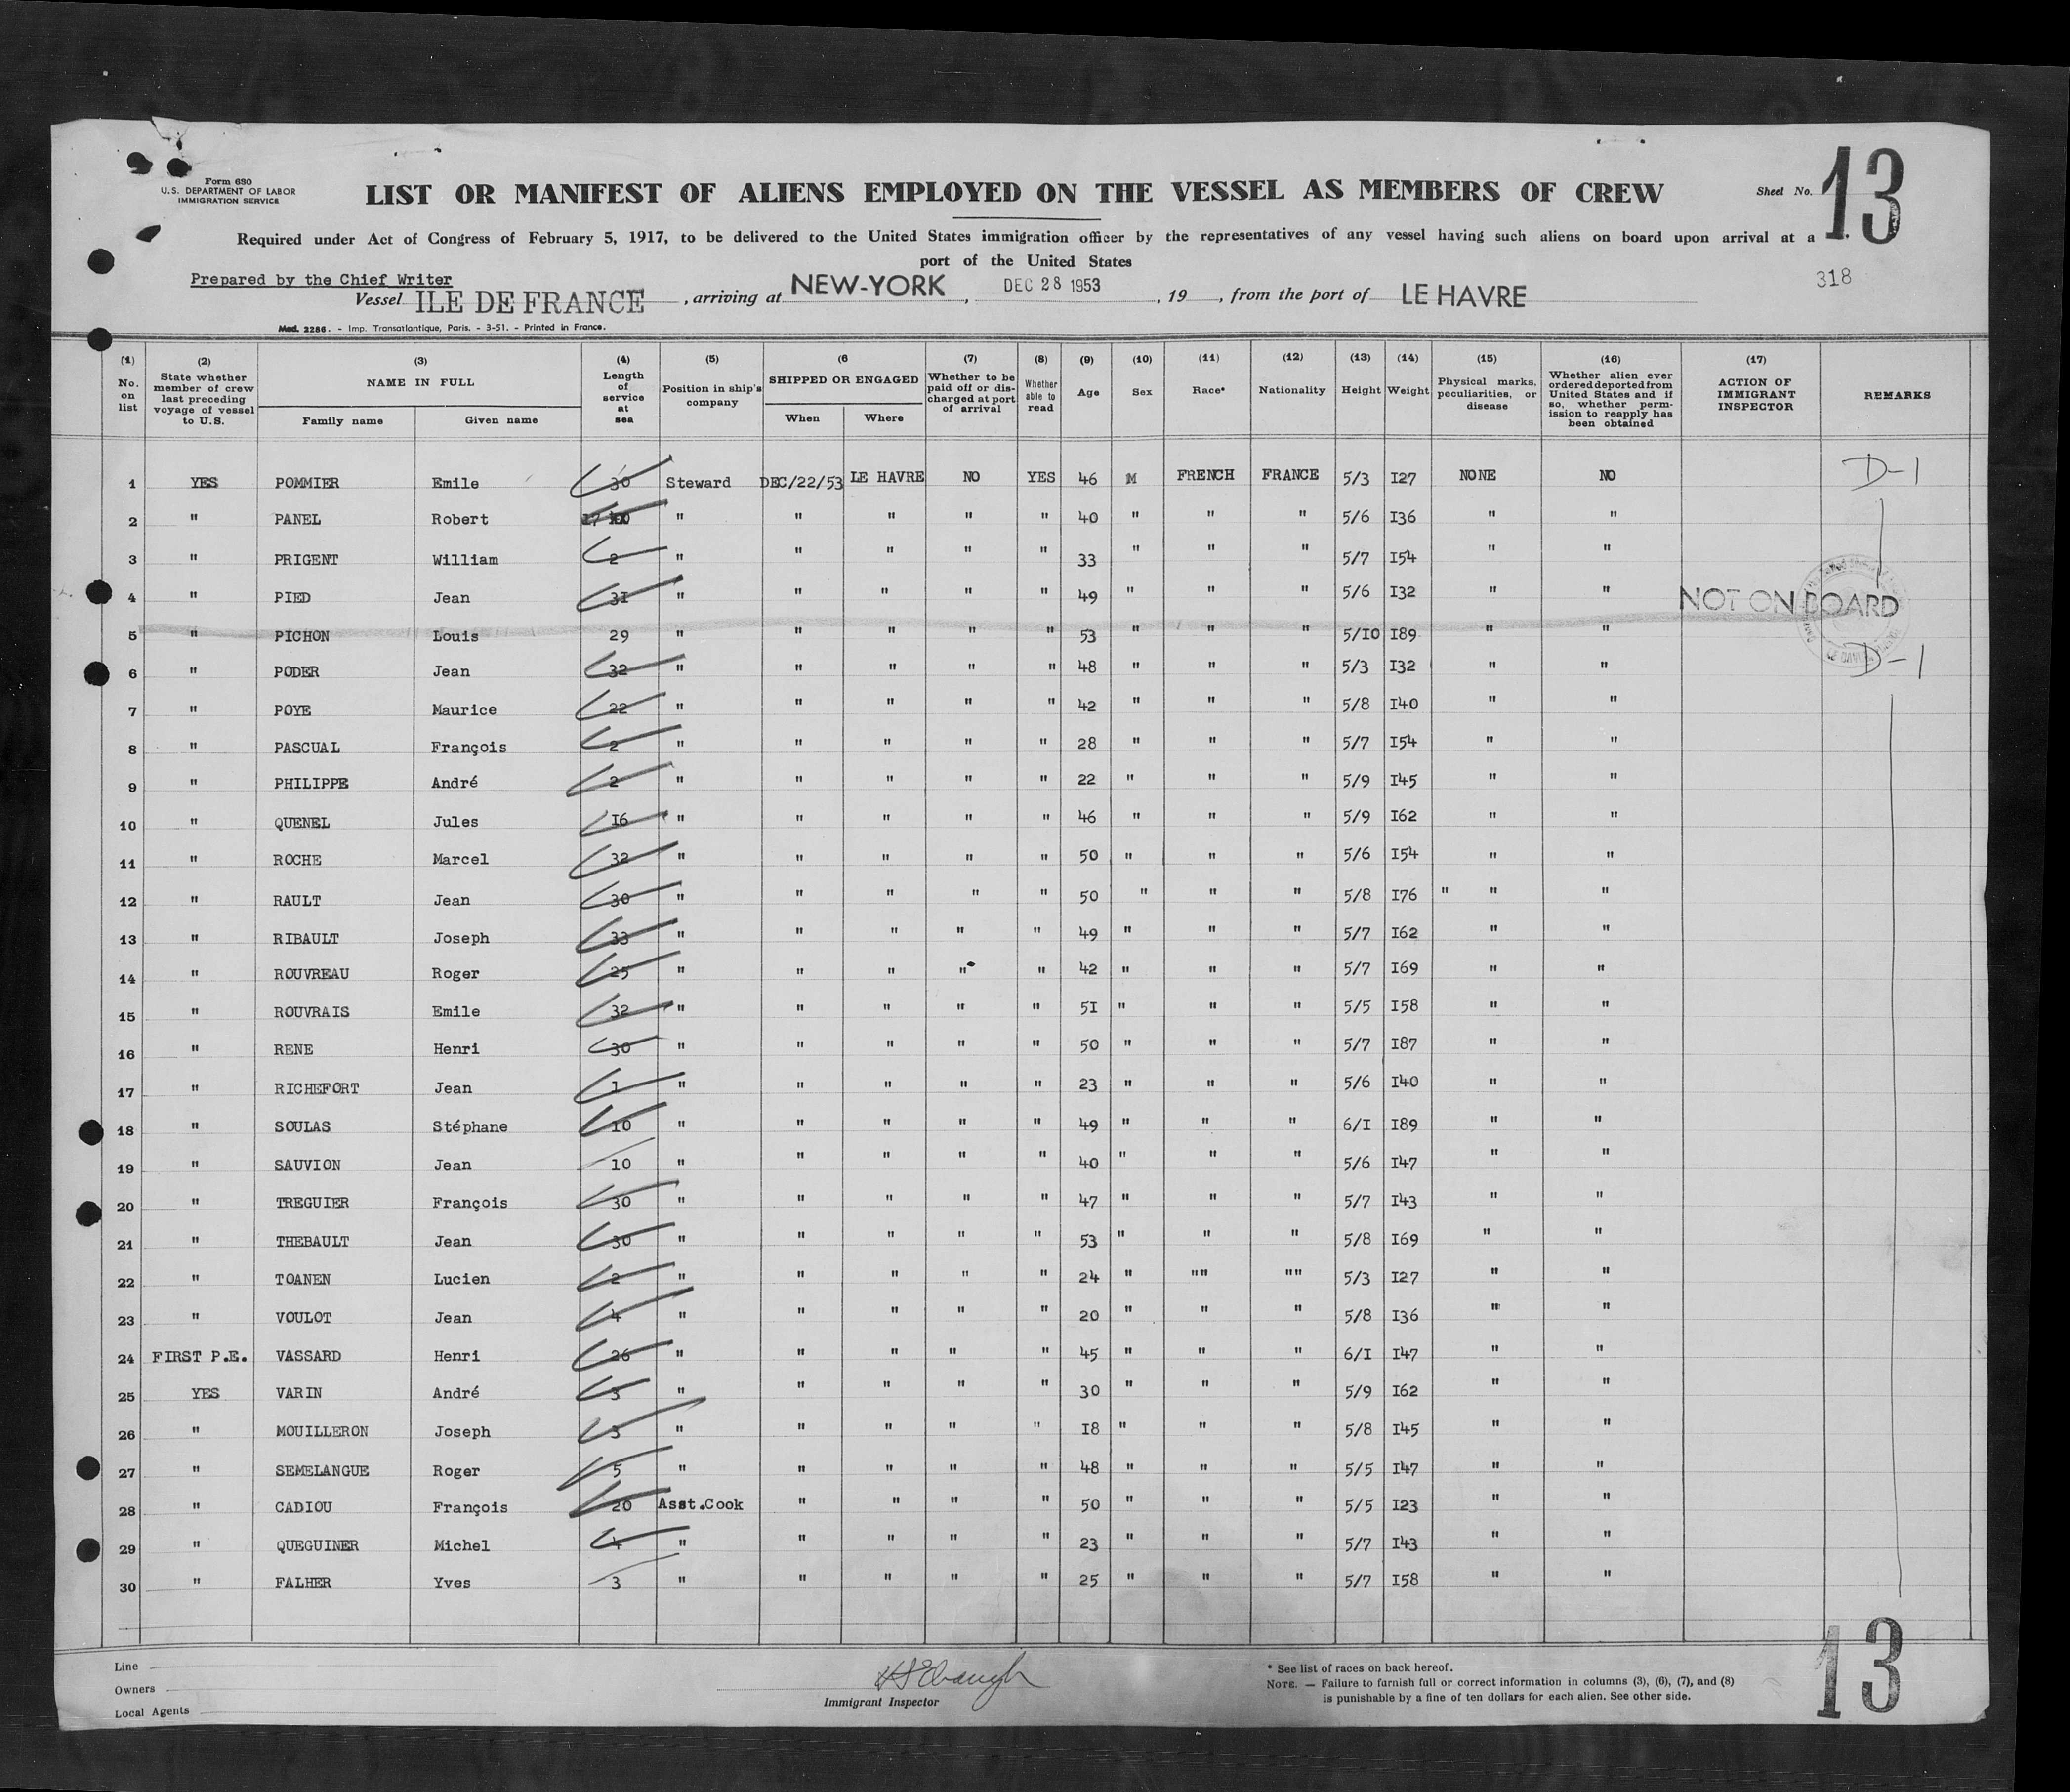 Form 680
U.S. DEPARTMENT OF LABOR
IMMIGRATION SERVICE
LIST OR MANIFEST OF ALIENS EMPLOYED ON THE VESSEL AS MEMBERS OF CREW
Sheet No. 13
Required under Act of Congress of February 5, 1917, to be delivered to the United States immigration officer by the representatives of any vessel having such aliens on board upon arrival at a
port of the United States
Prepared by the Chief Writer
318
Vessel ILE DE FRANCE, arriving at NEW-YORK, DEC 28 1953, 19, from the port of LE HAVRE
Mod. 2286. - Imp. Transatlantique, Paris. - 3-51. - Printed in France.
(1) No. on list (2) State whether member of crew last preceding voyage of vessel to U.S. (3) NAME IN FULL Family name Given name (4) Length of service at sea (5) Position in ship's company (6 SHIPPED OR ENGAGED When Where (7) Whether to be paid off or discharged at port of arrival (8) Whether able to read (9) Age (10) Sex (11) Race* (12) Nationality (13) Height (14) Weight (15) Physical marks, peculiarities, or disease (16) Whether alien ever ordered deported from United States and if so, whether permission to reapply has been obtained (17) ACTION OF IMMIGRANT INSPECTOR REMARKS
1 YES POMMIER Emile 30 Steward DEC/22/53 LE HAVRE NO YES 46 M FRENCH FRANCE 5/3 I27 NONE NO D-1
2 " PANEL Robert 17 " " " " " 40 " " " 5/6 I36 " "
3 " PRIGENT William 2 " " " " " 33 " " " 5/7 I54 " "
4 " PIED Jean 3I " " " " " 49 " " " 5/6 I32 " " NOT ON BOARD
5 " PICHON Louis 29 " " " " " 53 " " " 5/IO I89 " "
6 " PODER Jean 32 " " " " " 48 " " " 5/3 I32 " " D-1
7 " POYE Maurice 22 " " " " " 42 " " " 5/8 I40 " "
8 " PASCUAL François 2 " " " " " 28 " " " 5/7 I54 " "
9 " PHILIPPE André 2 " " " " " 22 " " " 5/9 I45 " "
10 " QUENEL Jules I6 " " " " " 46 " " " 5/9 I62 " "
11 " ROCHE Marcel 32 " " " " " 50 " " " 5/6 I54 " "
12 " RAULT Jean 30 " " " " " 50 " " " 5/8 I76 " " "
13 " RIBAULT Joseph 33 " " " " " 49 " " " 5/7 I62 " "
14 " ROUVREAU Roger 25 " " " " " 42 " " " 5/7 I69 " "
15 " ROUVRAIS Emile 32 " " " " " 5I " " " 5/5 I58 " "
16 " RENE Henri 30 " " " " " 50 " " " 5/7 I87 " "
17 " RICHEFORT Jean 1 " " " " " 23 " " " 5/6 I40 " "
18 " SOULAS Stéphane 10 " " " " " 49 " " " 6/I I89 " "
19 " SAUVION Jean 10 " " " " " 40 " " " 5/6 I47 " "
20 " TREGUIER François 30 " " " " " 47 " " " 5/7 I43 " "
21 " THEBAULT Jean 30 " " " " " 53 " " " 5/8 I69 " "
22 " TOANEN Lucien 2 " " " " " 24 " "" "" 5/3 I27 " "
23 " VOULOT Jean 4 " " " " " 20 " " " 5/8 I36 " "
24 FIRST P.E. VASSARD Henri 26 " " " " " 45 " " " 6/I I47 " "
25 YES VARIN André 3 " " " " " 30 " " " 5/9 I62 " "
26 " MOUILLERON Joseph 3 " " " " " I8 " " " 5/8 I45 " "
27 " SEMELANGUE Roger 5 " " " " " 48 " " " 5/5 I47 " "
28 " CADIOU François 20 Asst.Cook " " " " 50 " " " 5/5 I23 " "
29 " QUEGUINER Michel 4 " " " " " 23 " " " 5/7 I43 " "
30 " FALHER Yves 3 " " " " " 25 " " " 5/7 I58 " "
Line
Owners
Local Agents
Immigrant Inspector
* See list of races on back hereof.
NOTE. — Failure to furnish full or correct information in columns (3), (6), (7), and (8)
is punishable by a fine of ten dollars for each alien. See other side.
13